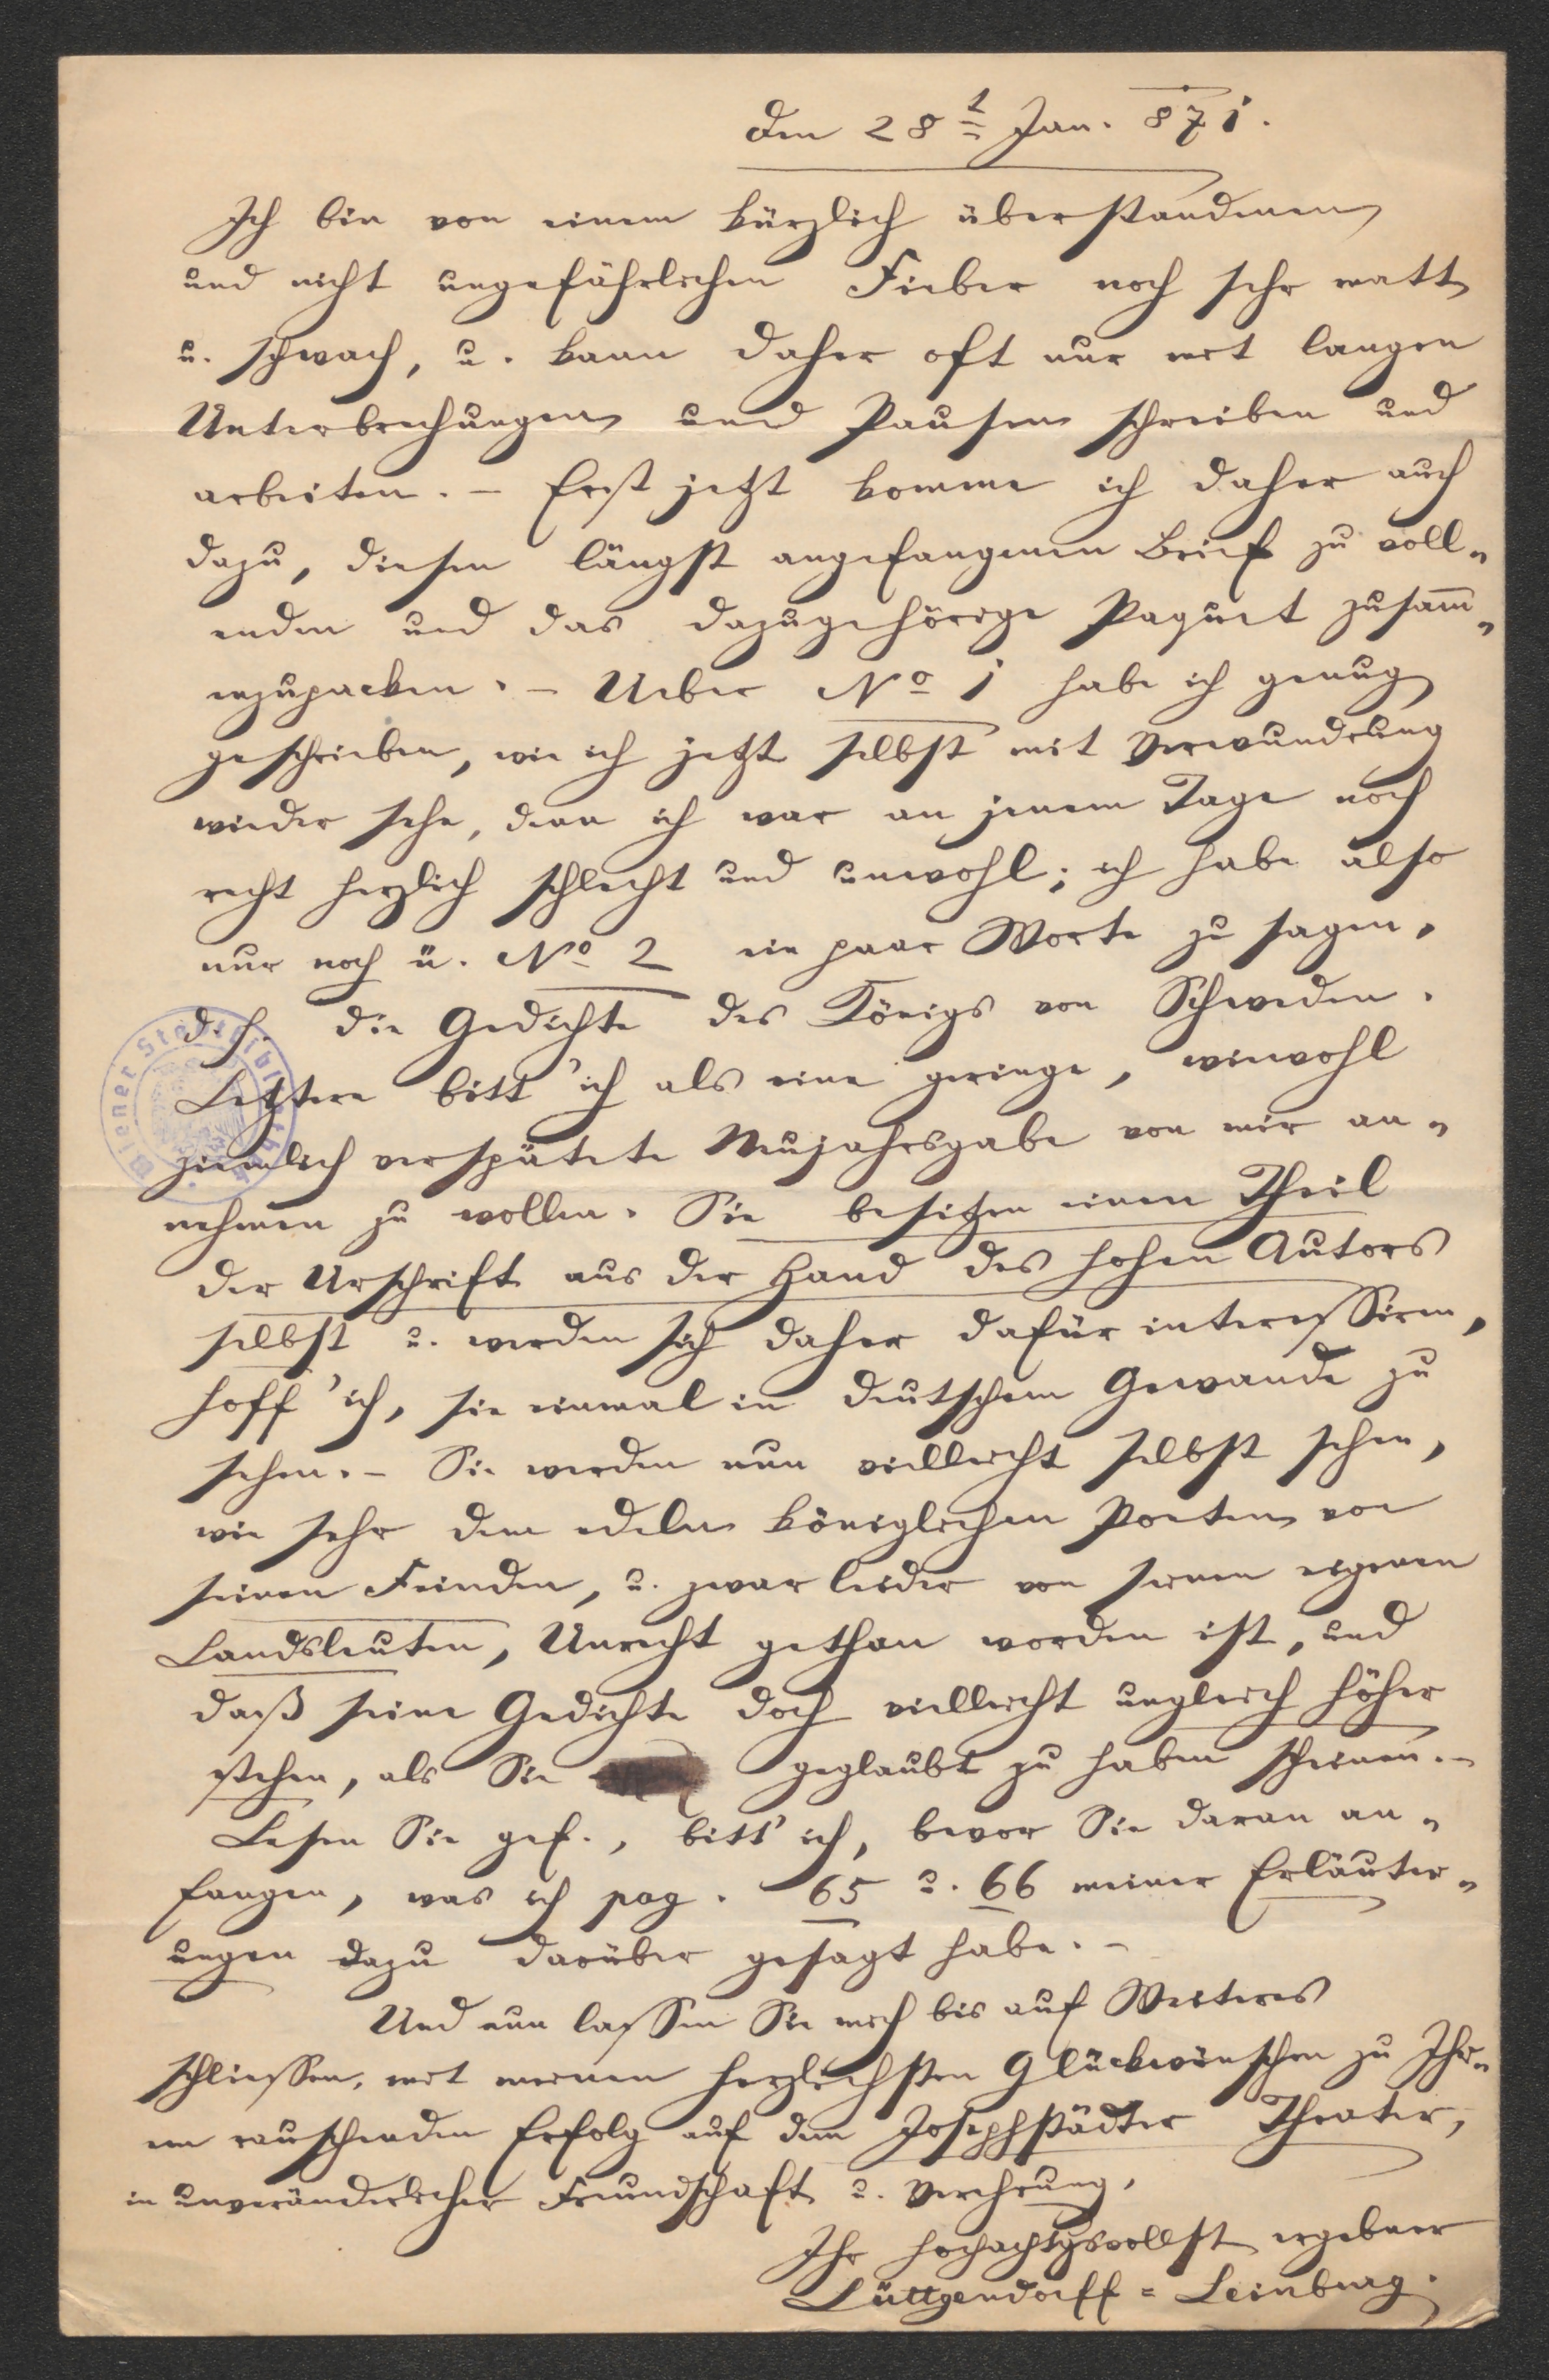 den 28t Jan. 871.
Ich bin von einem kürzlich überstandenen
und nicht ungefährlichen Fieber noch sehr matt
u. schwach, u. kann daher oft nur mit langen
Unterbrechungen und Pausen schreiben und
arbeiten. – Erst jetzt komme ich daher auch
dazu, diesen längst angefangenen Brief zu voll„
enden und das dazugehörige Paquet zusam̄„
enzupacken. – Ueber No 1 habe ich genug
geschrieben, wie ich jetzt selbst mit Verwundrung
wieder sehe, denn ich war an jenem Tage noch
recht herzlich schlecht und unwohl; ich habe also
nur noch ü. No 2 ein paar Worte zu sagen,
d. h. die Gedichte des Königs von Schweden.
Letztere bitt' ich als eine geringe, wiewohl
ziemlich verspätete Neujahrsgabe von mir an„
nehmen zu wollen. Sie besitzen einen Theil
der Urschrift aus der Hand des hohen Autors
selbst u. werden sich daher dafür interessiren,
hoff' ich, sie einmal in deutschem Gewande zu
sehen. – Sie werden nun vielleicht selbst sehen,
wie sehr dem edeln königlichen Poeten von
seinen Feinden, u. zwar leider von seinen eigenen
Landsleuten, Unrecht gethan worden ist, und
daß seine Gedichte doch vielleicht ungleich höher
stehen, als Sie geglaubt zu haben scheinen. –
Lesen Sie gef., bitt' ich, bevor Sie daran an„
fangen, was ich pag. 65 u. 66 meiner Erläuter„
ungen dazu darüber gesagt habe. –
Und nun lassen Sie mich bis auf Weiteres
schliessen, mit meinen herzlichsten Glückwünschen zu Ihr„
em rauschenden Erfolg auf dem Josephstädter Theater,
in unveränderlicher Freundschaft u. Verehrung,
Ihr hochachtgsvollst ergebner
Lüttgendorff = Leinburg.
Wiener Stadtbibliothek